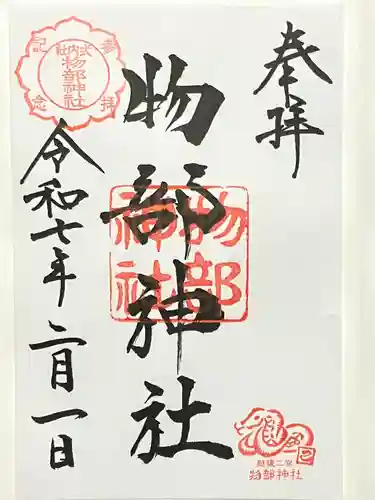 奉拝
物部神社
令和七年二月一日
参拝記念
式内社
物部神社
物部神社
越後二宮
物部神社